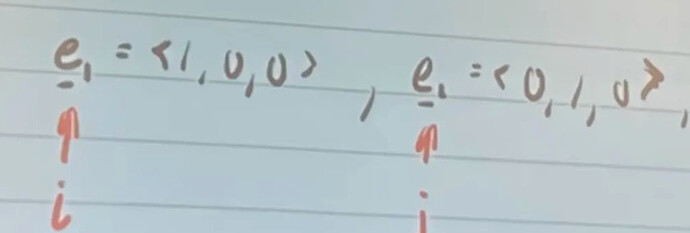 e₁ = <1, 0, 0> , e₁ = <0, 1, 0> ,
i